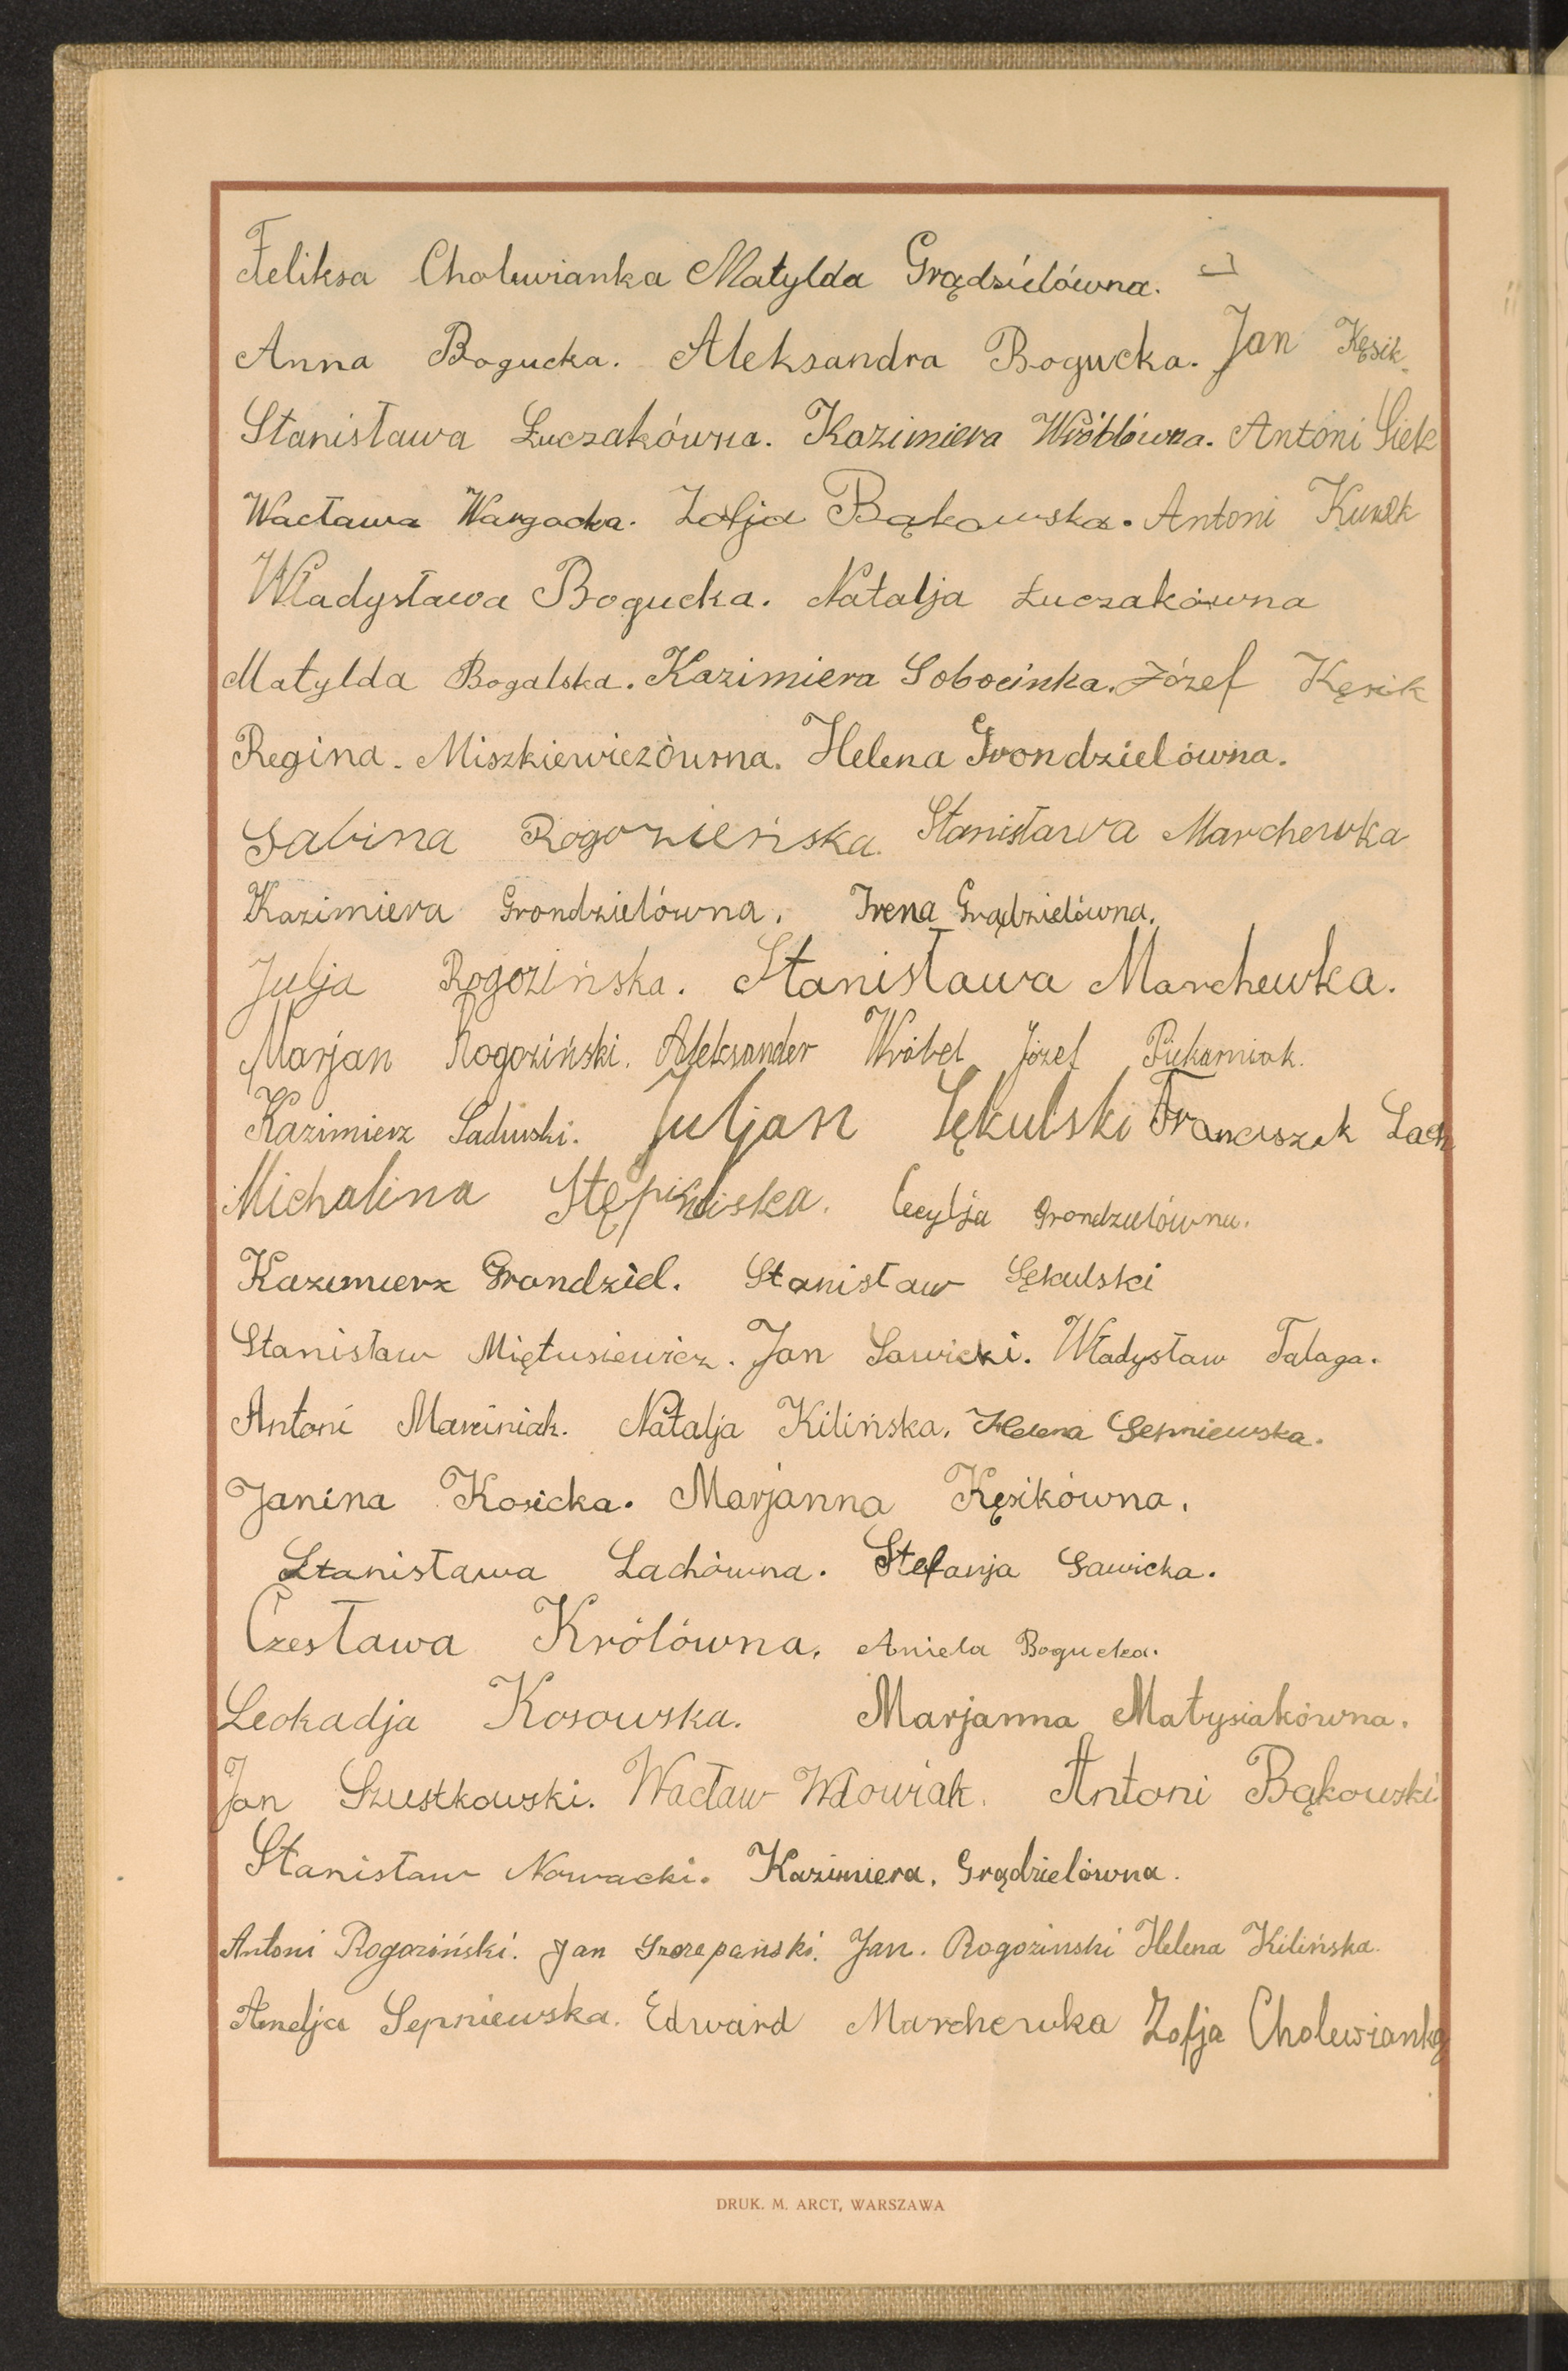 Feliksa Cholewianka Matylda Grądzielówna.
Anna Bogucka. Aleksandra Bogucka. Jan Kęsik.
Stanisława Łuczakówna. Kazimiera Wróblówna. Antoni Siek
Wacława Wargacka. Zofja Bąkowska. Antoni Kurek
Władysława Bogucka. Natalja Łuczakówna
Matylda Bogalska. Kazimiera Sobocinka. Józef Kęsik
Regina. Miszkiewiczówna. Helena Grondzielówna.
Sabina Rogozieńska. Stanisława Marchewka
Kazimiera Grondzielówna. Irena Grądzielówna.
Julja Rogozińska. Stanisława Marchewka.
Marjan Rogoziński. Aleksander Wróbel Józef Piekarniak.
Kazimierz Sadurski. Juljan Sękulski Franciszek Lach
Michalina Cecylja Grondzielówna.
Kazimierz Grondziel. Stanisław Sękulski
Stanisław Miętusiewicz. Jan Sawicki. Władysław Talaga.
Antoni Marciniak. Natalja Kilińska. Helena Sepniewska.
Janina Kosicka. Marjanna Kęsikówna.
Stanisława Lachówna. Stefanja Sawicka.
Czesława Królówna. Aniela Bogucka.
Leokadja Kosowska. Marjanna Matysiakówna.
Jan Szustkowski. Wacław Wdowiak. Antoni Bąkowski.
Stanisław Nowacki. Kazimiera. Grądzielówna.
Antoni Rogoziński. Jan Szczepański. Jan. Rogozinski Helena Kilińska.
Amelja Sepniewska. Edward Marchewka Zofja Cholewianka
DRUK. M. ARCT, WARSZAWA